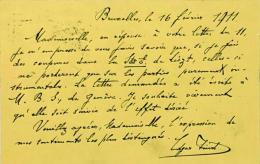 Bruxelles, le 16 février 1911.
Mademoiselle, en réponse à votre lettre du 11,
je m'empresse de vous faire savoir que, si je fais
des coupures dans la de Liszt, celles-ci
ne porteront que sur les parties purement in-
strumentales. La lettre demandée a été envoyée à
M. B. S., de Genève. Je souhaite vivement
qu'elle soit suivie de l'effet désiré.
Veuillez agréer, Mademoiselle, l'expression de
mes sentiments les plus distingués.